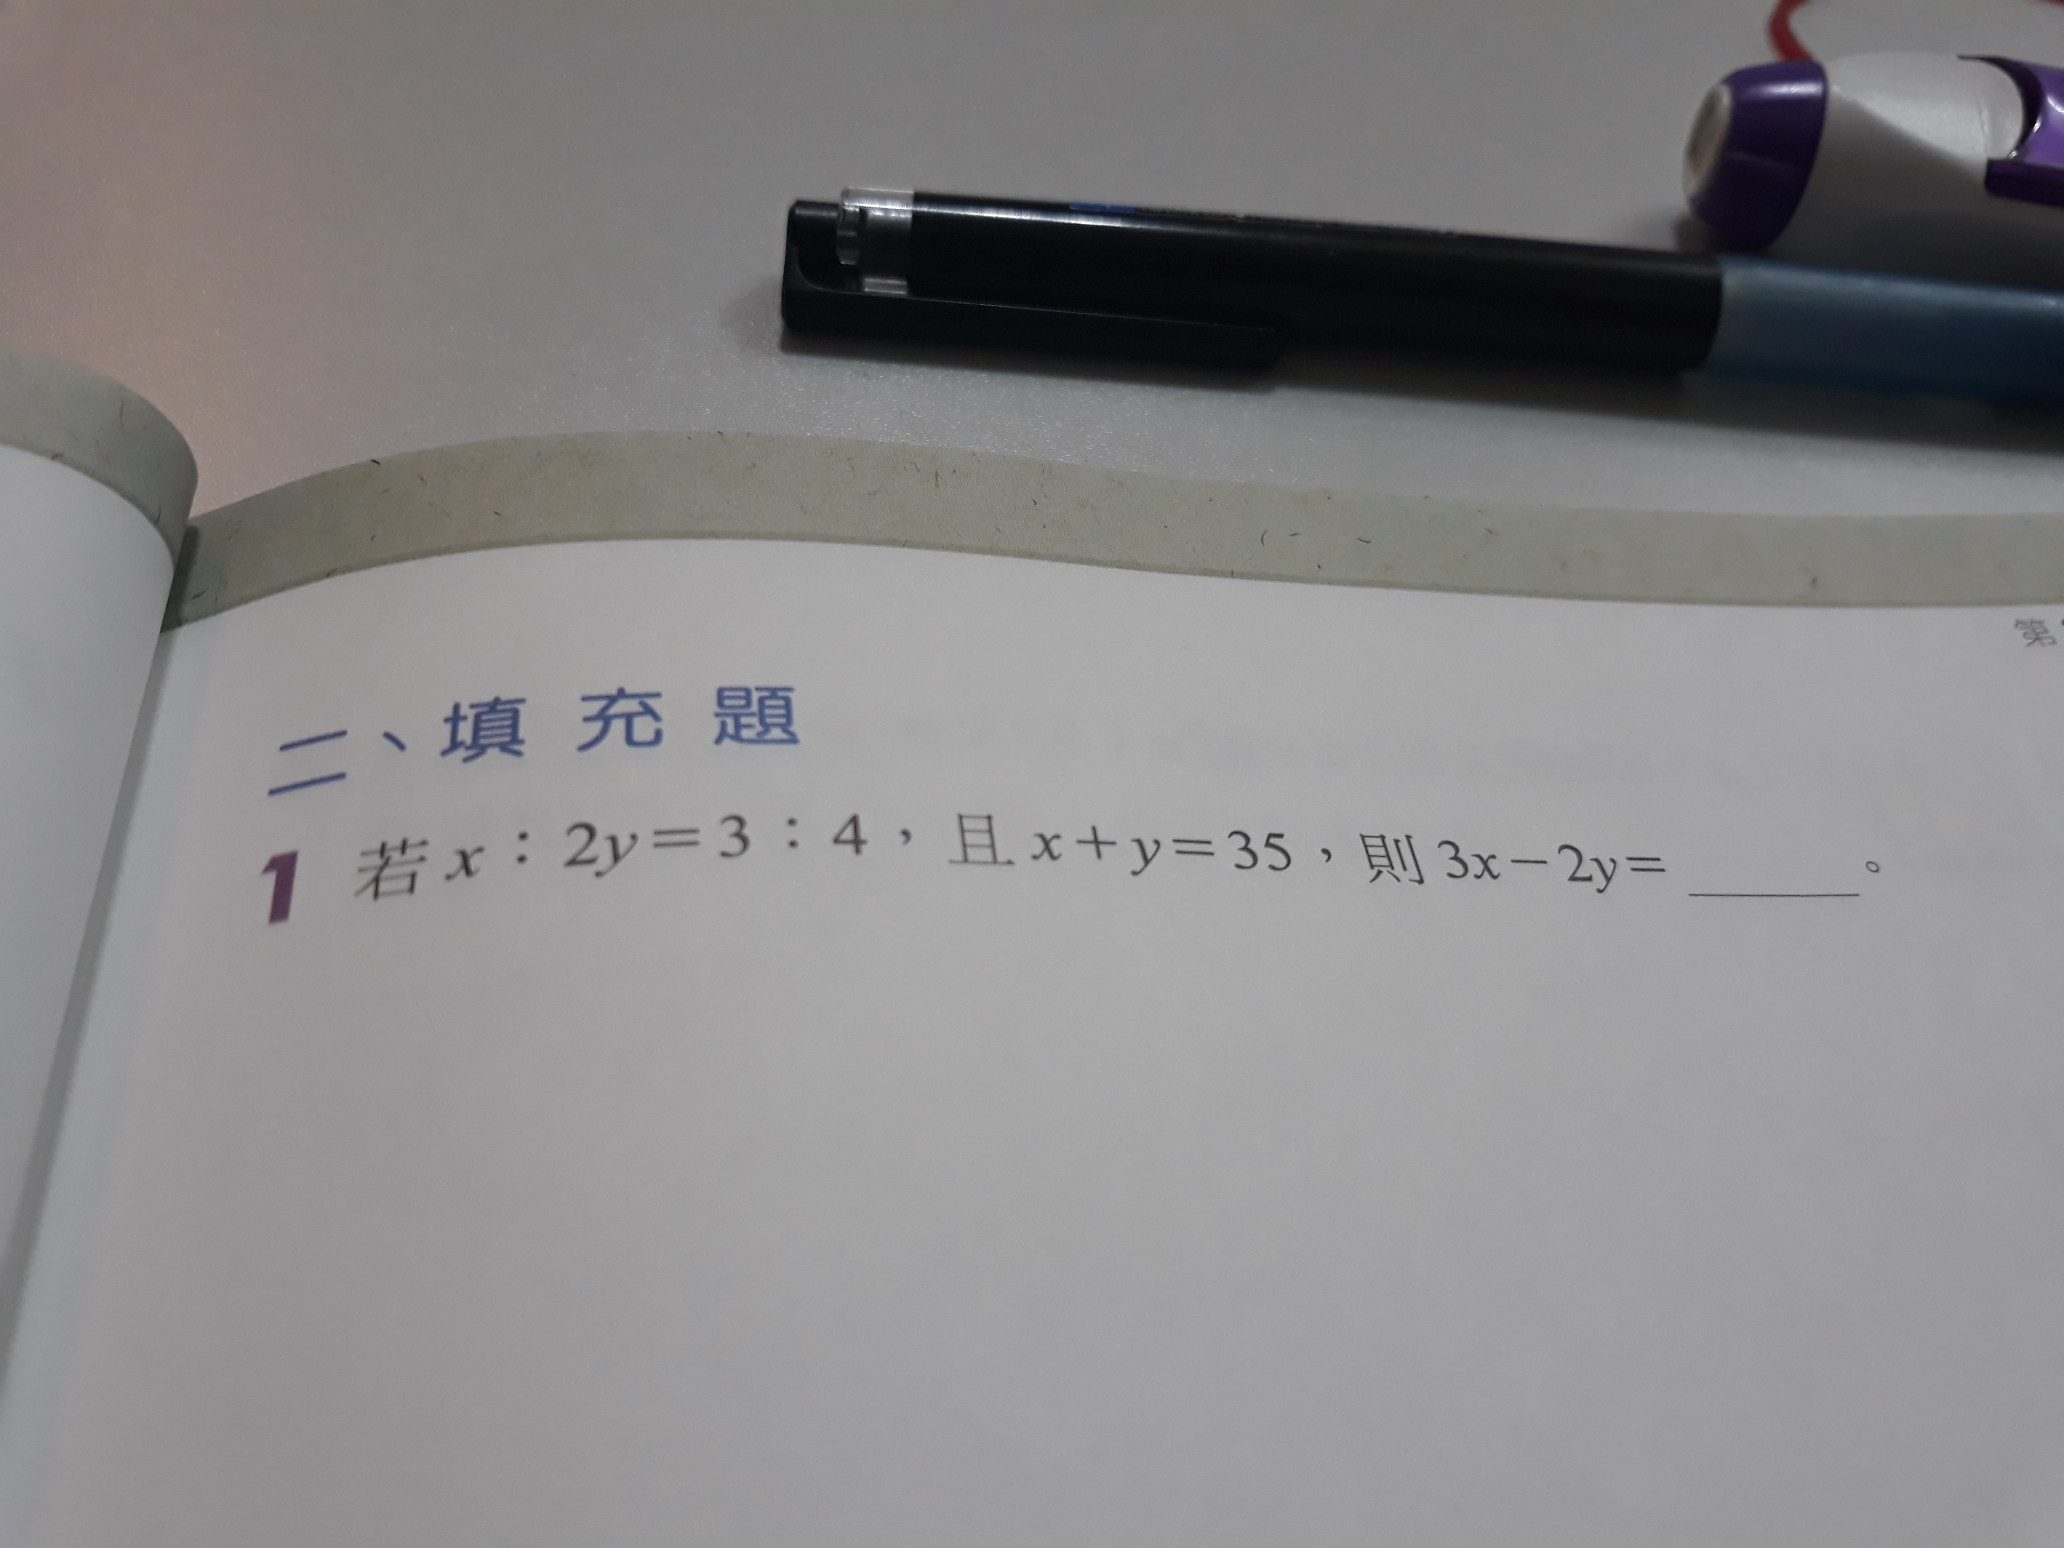 第
二、填充題
1 若 x：2y＝3：4，且 x＋y＝35，則 3x－2y＝______。